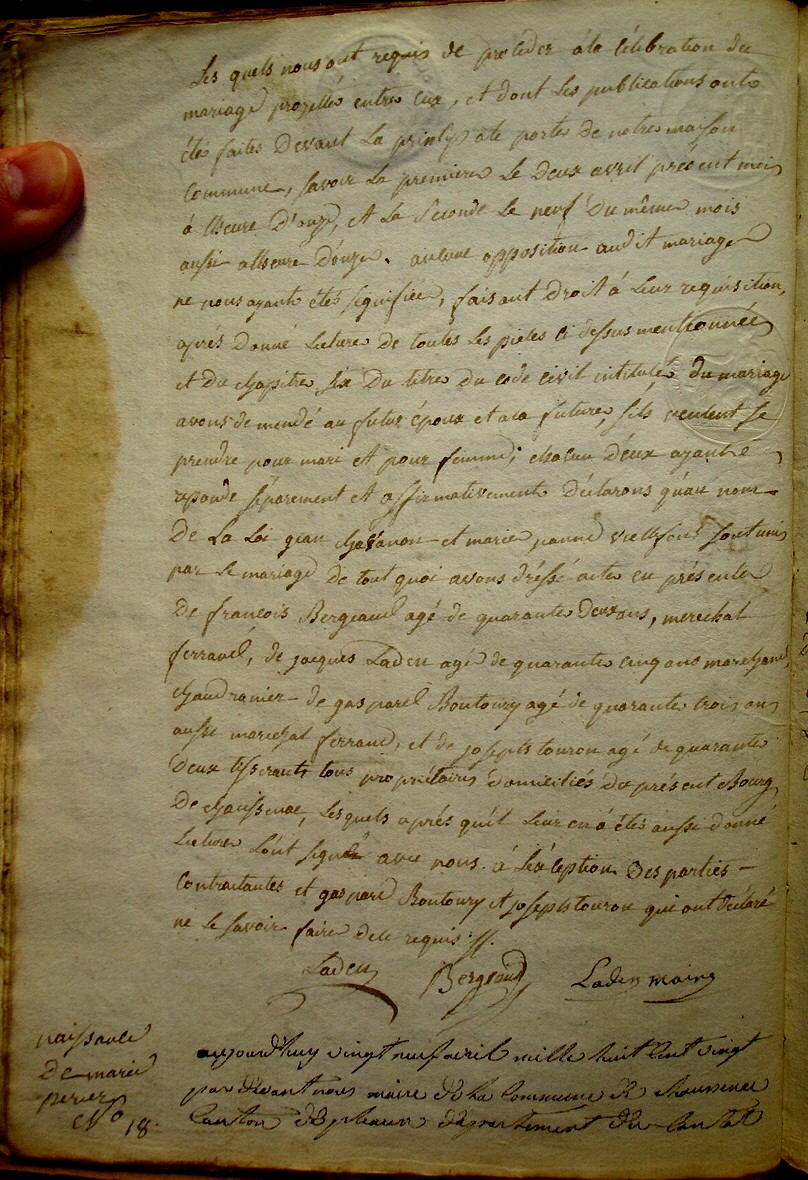 Les quels nous ont requis de proceder á la Célébration du
mariage projettés entre eux, et dont les publications ont
étés faites devant La principale porte de notre maison
Commune, savoir La premiere Le deux avril présent mois
á lheure D'onze, et La Seconde Le neuf Du même mois
aussi alheure D'onze. aucune opposition audit mariage
ne nous ayant étés signifiée, faisant Droit á Leur requisition,
aprés Donné Lecture De toutes Les pieces Ci dessus mentionnées
et du chapitre six Du titre Du code civil intitulé, du mariage
avons demendé au futur époux et a la future, sils veulent se
prendre pour mari et pour femme; chacun D'eux ayant
repondu séparement et affirmativement Déclarons qu'au nom
De La Loi jean et marie jeanne sont unis
par Le mariage de tout quoi avons dréssé acte en présence
De francois Bergeaud agé de quarante Deux ans, merechal
ferrand, de jacques Laden agé de quarante cinq ans marchand
chaudronier de gaspard Boutoury agé de quarante trois ans
aussi marechal ferrand, et de joseph touron agé de quarante
Deux tisserant, tous propriétaires domiciliés du présent Bourg
De chaussenac, Lesquels aprés qu'il Leur en á étés aussi donné
Lecture L'ont signé avec nous á L'exception Des parties
Contractantes et gaspard Boutoury et joseph touron qui ont déclaré
ne le savoir faire de ce requis.
Laden Bergeaud Laden maire
naissance
De marie
perier
N° 18.
aujourd'huy vingt neuf avril mille huit cent vingt
par devant nous maire de la Commune de chaussenac
Canton de pleaux département du Cantal